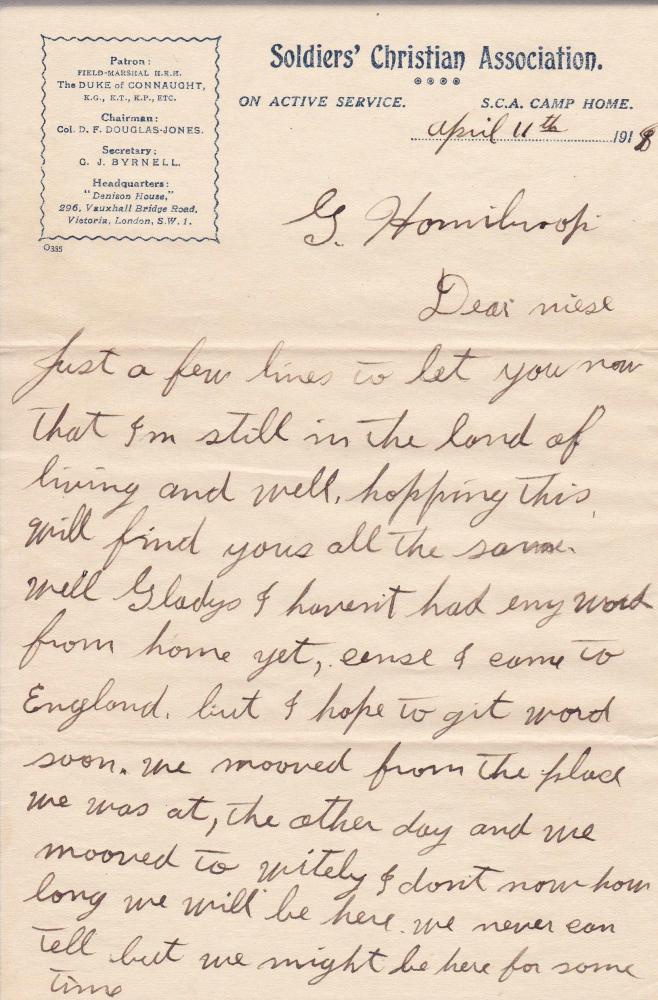 Patron:
FIELD-MARSHAL H.R.H.
The DUKE of CONNAUGHT,
K.G., K.T., K.P., ETC.
Chairman:
Col. D. F. DOUGLAS-JONES.
Secretary:
G. J. BYRNELL.
Headquarters:
"Denison House,"
296, Vauxhall Bridge Road,
Victoria, London, S.W. 1.
O335
Soldiers' Christian Association.
ON ACTIVE SERVICE. S.C.A. CAMP HOME.
April 11th 1918
G.
Dear niese
Just a few lines to let you now
that I'm still in the land of
living and well, hopping this
will find yous all the same.
well Gladys I havent had eny word
from home yet, cense I came to
England. but I hope to git word
soon. we mooved from the place
we was at, the other day and we
mooved to witely I dont now how
long we will be here. we never can
tell but we might be here for some
time